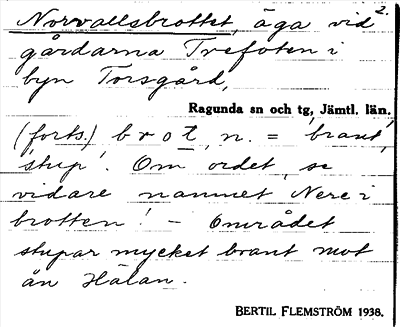 2.
Norvallsbrottet, äga vid
gårdarna Trefoten i
byn Torsgård,
Ragunda sn och tg, Jämtl. län.
(forts.) brot, n. = 'brant',
'stup'. Om ordet, se
vidare namnet Nere i
brotten! - Området
stupar mycket brant mot
ån Hälan.
BERTIL FLEMSTRÖM 1938.